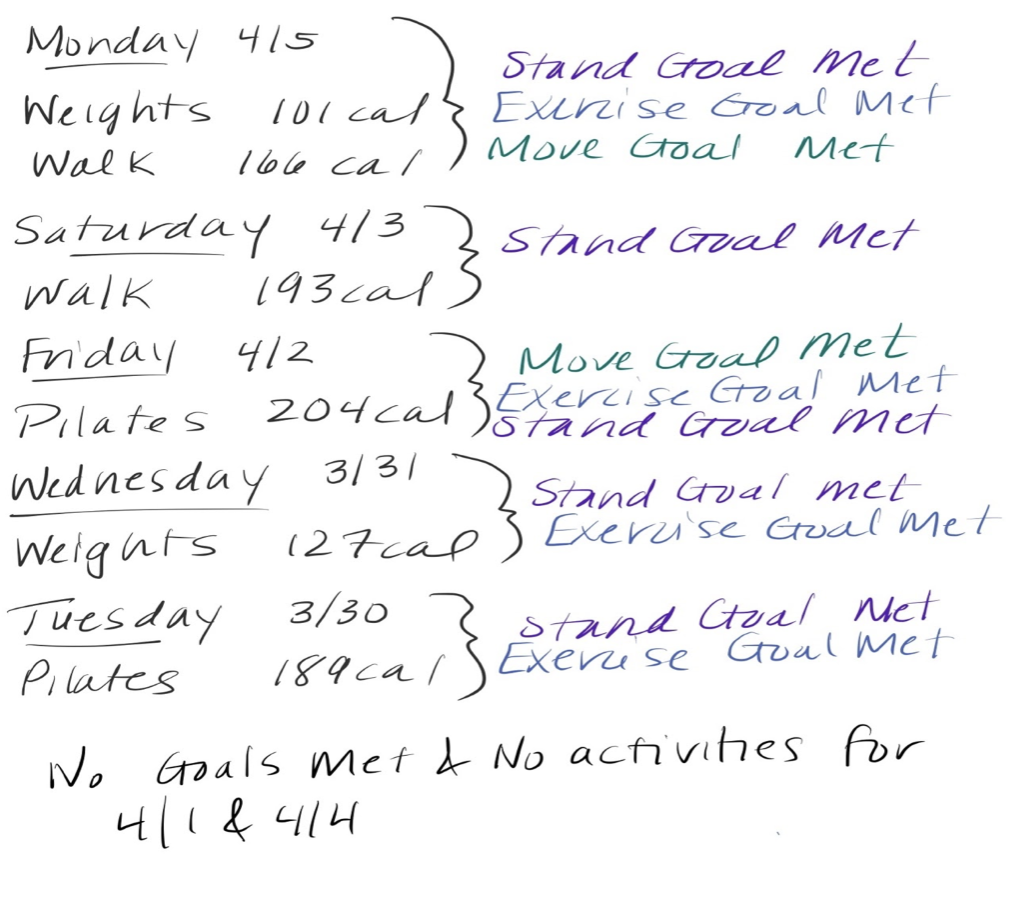 Monday 4/5
Weights 101 cal
Walk 166 cal
Stand Goal Met
Exercise Goal Met
Move Goal Met
Saturday 4/3
Walk 193 cal
Stand Goal Met
Friday 4/2
Pilates 204 cal
Move Goal Met
Exercise Goal Met
Stand Goal Met
Wednesday 3/31
Weights 127 cal
Stand Goal met
Exercise Goal Met
Tuesday 3/30
Pilates 189 cal
Stand Goal Met
Exercise Goal Met
No Goals Met & No activities for
4/1 & 4/4